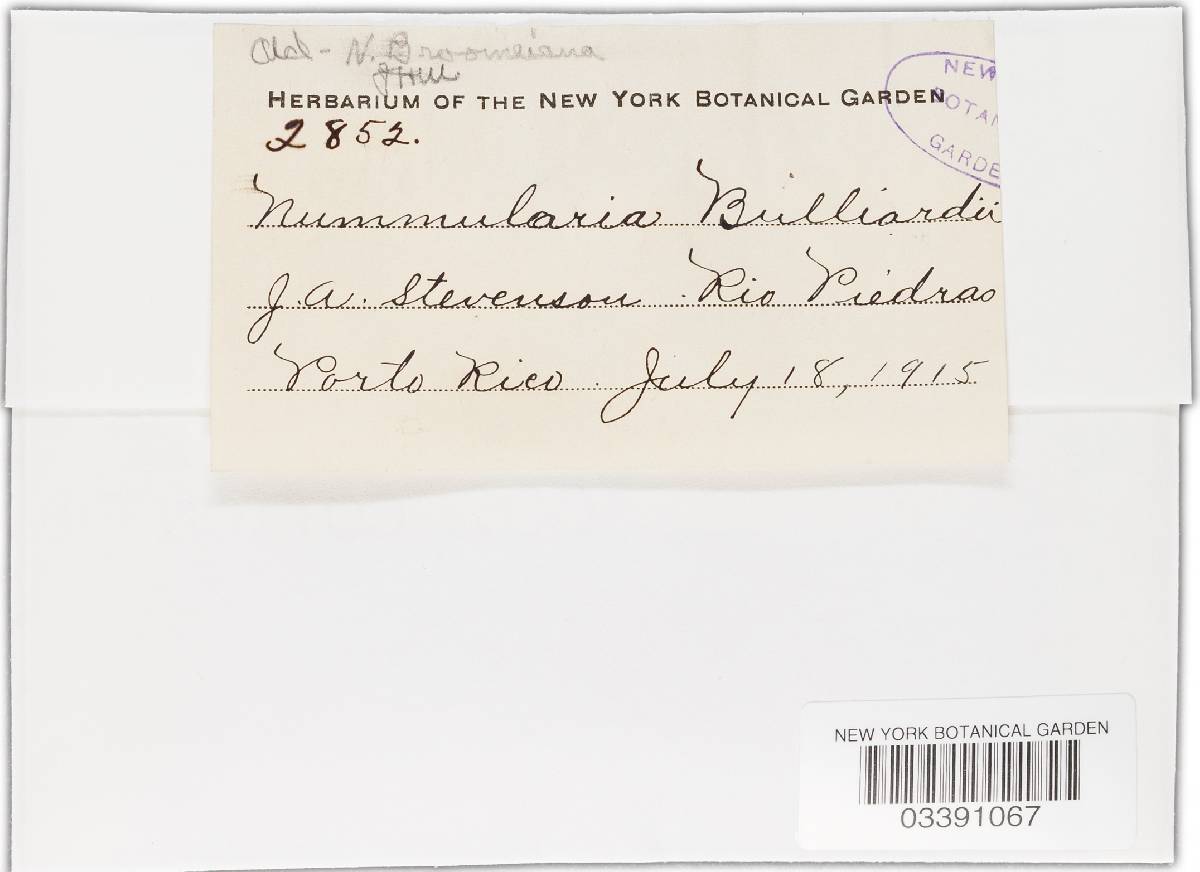 Old - N. Broomeiana
JHM
HERBARIUM OF THE NEW YORK BOTANICAL GARDEN
2852.
NEW
BOTAN
GARDE
Nummularia Bulliardii
J. A. Stevenson Rio Piedras
Porto Rico July 18, 1915
NEW YORK BOTANICAL GARDEN
03391067